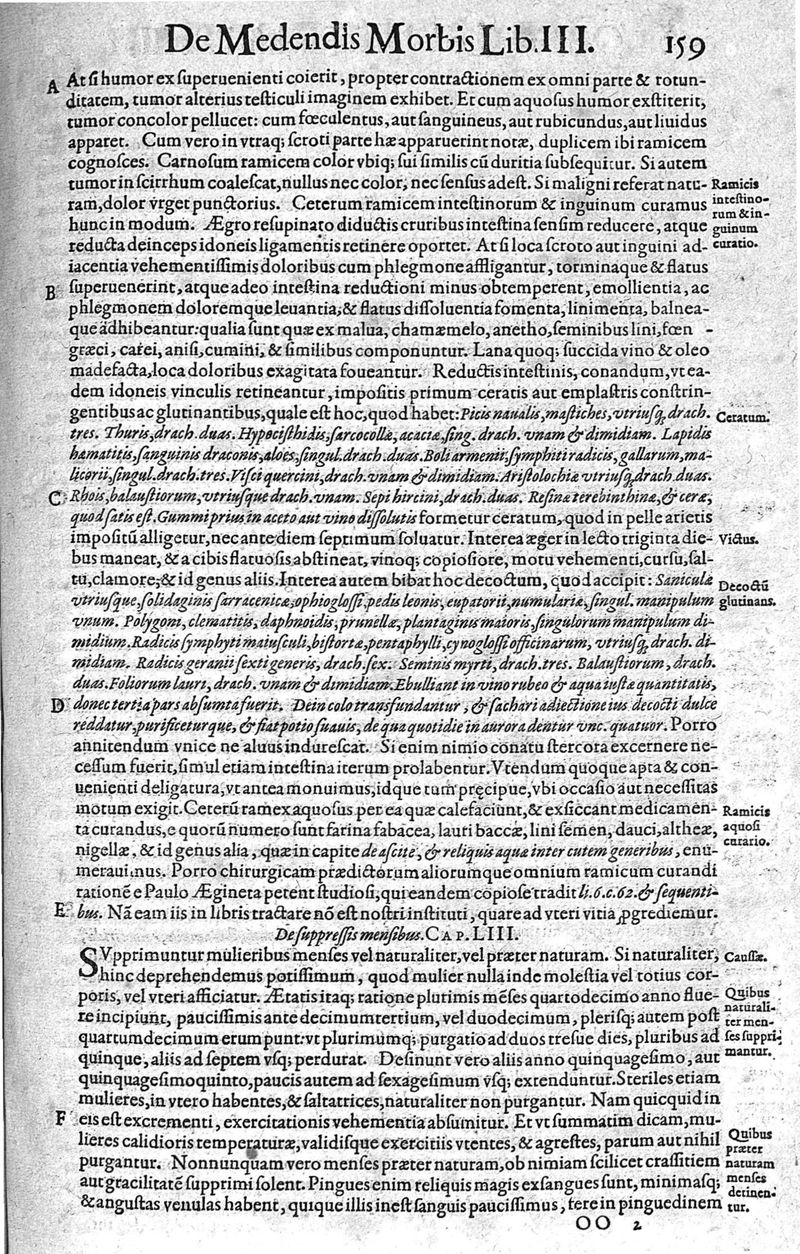 De Medendis Morbis Lib. III. 159
A At si humor ex superuenienti coierit, propter contractionem ex omni parte & rotun-
ditatem, tumor alterius testiculi imaginem exhibet. Et cum aquosus humor exstiterit,
tumor concolor pellucet: cum fœculentus, aut sanguineus, aut rubicundus, aut liuidus
apparet. Cum vero in vtraq; scroti parte hæ apparuerint notæ, duplicem ibi ramicem
cognosces. Carnosum ramicem color vbiq; sui similis cū duritia subsequitur. Si autem
tumor in scirrhum coalescat, nullus nec color, nec sensus adest. Si maligni referat natu-
ram, dolor vrget punctorius. Ceterum ramicem intestinorum & inguinum curamus
hunc in modum. Ægro resupinato diductis cruribus intestina sensim reducere, atque
reducta deinceps idoneis ligamentis retinere oportet. At si loca scroto aut inguini ad-
iacentia vehementissimis doloribus cum phlegmone affligantur, torminaque & flatus
B superuenerint, atque adeo intestina reductioni minus obtemperent, emollientia, ac
phlegmonem doloremque leuantia, & flatus dissoluentia fomenta, linimenta, balnea-
que adhibeantur: qualia sunt quæ ex malua, chamæmelo, anetho, seminibus lini, fœn -
græci, carei, anisi, cumini, & similibus componuntur. Lana quoq; succida vino & oleo
madefacta, loca doloribus exagitata foueantur. Reductis intestinis, conandum, vt ea-
dem idoneis vinculis retineantur, impositis primum ceratis aut emplastris constrin-
gentibus ac glutinantibus, quale est hoc, quod habet: Picis naualis, mastiches, vtriusq, drach.
tres. Thuris, drach. duas. Hypocisthidis, sarcocollæ, acaciæ, sing. drach. vnam & dimidiam. Lapidis
hæmatitis, sanguinis draconis, aloës, singul. drach. duas. Boli armenii, symphiti radicis, gallarum, ma-
licorii, singul. drach. tres. Visci quercini, drach. vnam & dimidiam. Aristolochiæ vtriusq, drach. duas.
C Rhois, balaustiorum, vtriusque drach. vnam. Sepi hircini, drach. duas. Resinæ terebinthinæ, & ceræ,
quod satis est. Gummi prius in aceto aut vino dissolutis formetur ceratum, quod in pelle arietis
impositū alligetur, nec ante diem septimum soluatur. Interea æger in lecto triginta die-
bus maneat, & a cibis flatuosis abstineat, vinoq; copiosiore, motu vehementi, cursu, sal-
tu, clamore, & id genus aliis. Interea autem bibat hoc decoctum, quod accipit: Saniculæ
vtriusque, solidaginis sarracenicæ, ophioglossi, pedis leonis, eupatorii, numulariæ, singul. manipulum
vnum. Polygoni, clematitis, daphnoidis, prunellæ, plantaginis maioris, singulorum manipulum di-
midium. Radicis symphyti maiusculi, bistortæ, pentaphylli, cynoglossi officinarum, vtriusq, drach. di-
midiam. Radicis geranii sexti generis, drach. sex. Seminis myrti, drach. tres. Balaustiorum, drach.
duas. Foliorum lauri, drach. vnam & dimidiam. Ebulliant in vino rubeo & aqua iusta quantitatis,
D donec tertia pars absumta fuerit. Dein colo transfundantur, & sachari adiectione ius decocti dulce
reddatur, purificeturque, & fiat potio suauis, de qua quotidie in aurora dentur vnc. quatuor. Porro
annitendum vnice ne aluus indurescat. Si enim nimio conatu stercora excernere ne-
cessum fuerit, simul etiam intestina iterum prolabentur. Vtendum quoque apta & con-
uenienti deligatura, vt antea monuimus, idque tum præcipue, vbi occasio aut necessitas
motum exigit. Ceterū ramex aquosus per ea quæ calefaciunt, & exsiccant medicamen-
ta curandus, e quorū numero sunt farina fabacea, lauri baccæ, lini semen, dauci, altheæ,
nigellæ, & id genus alia, quæ in capite de ascite, & reliquis aquæ inter cutem generibus, enu-
merauimus. Porro chirurgicam prædictorum aliorumque omnium ramicum curandi
rationē e Paulo Ægineta petent studiosi, qui eandem copiose tradit li. 6. c. 62. & sequenti-
E bus. Nā eam iis in libris tractare nō est nostri instituti, quare ad vteri vitia ꝓgrediemur.
De suppressis mensibus. CAP. LIII.
SVpprimuntur mulieribus menses vel naturaliter, vel præter naturam. Si naturaliter,
hinc deprehendemus potissimum, quod mulier nulla inde molestia vel totius cor-
poris, vel vteri afficiatur. Ætatis itaq; ratione plurimis mēses quartodecimo anno flue-
re incipiunt, paucissimis ante decimumtertium, vel duodecimum, plerisq; autem post
quartumdecimum erumpunt: vt plurimumq; purgatio ad duos tresue dies, pluribus ad
quinque, aliis ad septem vsq; perdurat. Desinunt vero aliis anno quinquagesimo, aut
quinquagesimoquinto, paucis autem ad sexagesimum vsq; extenduntur. Steriles etiam
mulieres, in vtero habentes, & saltatrices, naturaliter non purgantur. Nam quicquid in
F eis est excrementi, exercitationis vehementia absumitur. Et vt summatim dicam, mu-
lieres calidioris temperaturæ, validisque exercitiis vtentes, & agrestes, parum aut nihil
purgantur. Nonnunquam vero menses præter naturam, ob nimiam scilicet crassitiem
aut gracilitatē supprimi solent. Pingues enim reliquis magis exsangues sunt, minimasq;
& angustas venulas habent, quique illis inest sanguis paucissimus, fere in pinguedinem
OO 2
Ramicis
intestino-
rum & in-
guinum
curatio.
Ceratum.
Victus.
Decoctū
glutinans.
Ramicis
aquosi
curatio.
Caussæ.
Quibus
naturali-
ter men-
ses suppri-
mantur.
Quibus
præter
naturam
menses
detinen-
tur.